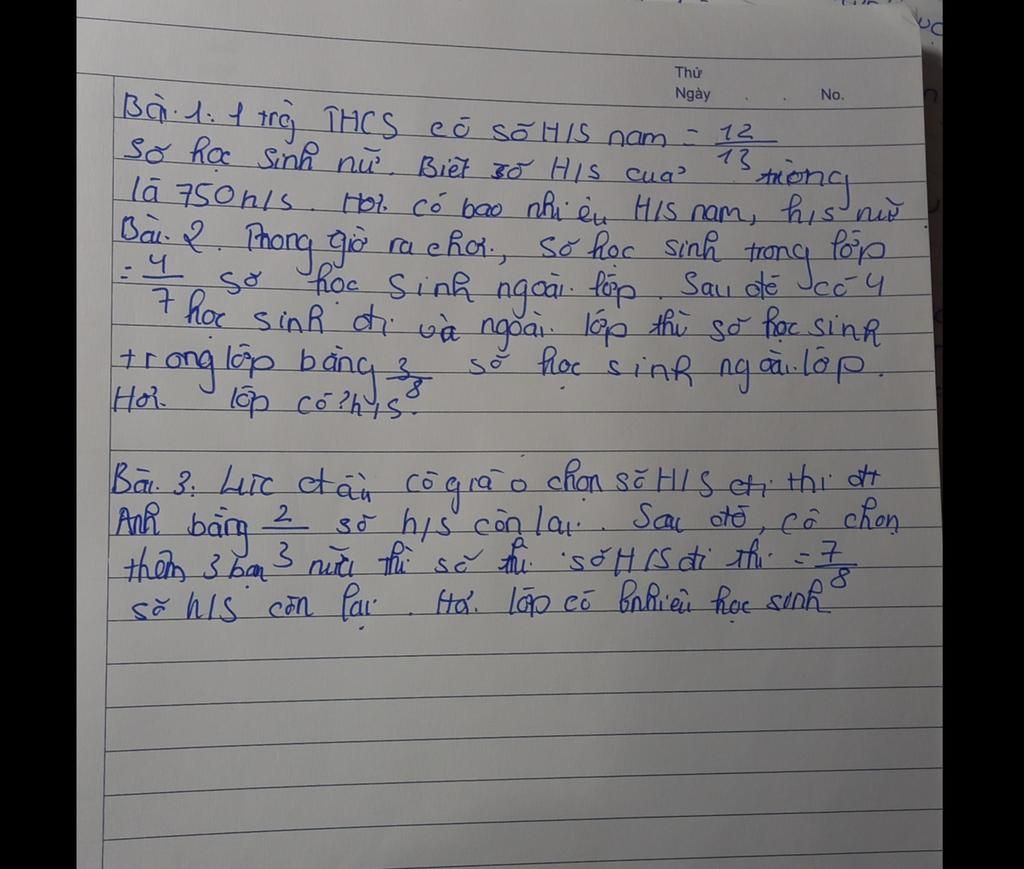 Thứ
Ngày . . No.
Bài. 1. 1 trg THCS có số H/S nam = 12/13
số học sinh nữ. Biết số H/S của trường
là 750h/s. Hỏi. có bao nhiêu H/S nam, h/s nữ
Bài. 2. Trong giờ ra chơi, số học sinh trong lớp
= 4/7 số học sinh ngoài lớp. Sau đó có 4
học sinh đi và ngoài lớp thì số học sinh
trong lớp bằng 3/8 số học sinh ngoài lớp.
Hỏi. lớp có ? h/s.
Bài. 3. Lúc đầu cô giáo chọn số H/S đi thi
Anh bằng 2/3 số h/s còn lại. Sau đó, cô chọn
thêm 3 bạn nữa thì số thi số H/S đi thi = 7/8
số h/s còn lại. Hỏi. lớp có bnhiêu học sinh